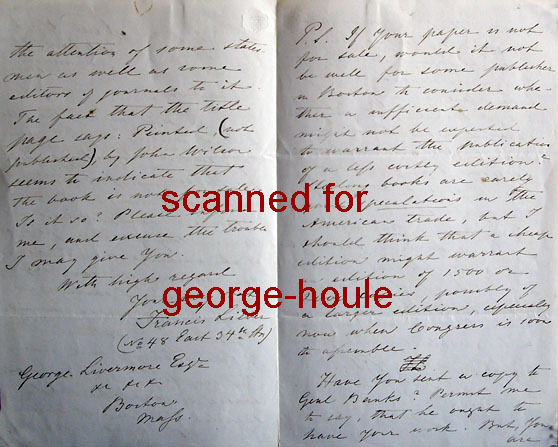 the attention of some states
men as well as some
editors of journals to it.
The fact that the title
page says: Printed (not
published) by John Wilson
seems to indicate that
the book is not
Is it so? Please
me, and excuse the trouble
I may give You.
With high regard
Your
Francis Lieber
(No 48 East 34th Str)
George Livermore Esqr
Boston
Mass.
P.S. If Your paper is not
for sale, would it not
be well for some publisher
in Boston to consider whe-
ther a sufficient demand
might not be expected
to warrant the publication
of a less costly edition?
books are rarely
speculations in the
American trade, but I
should think that a cheap
edition might warrant
edition of 1500 or
copies, possibly of
a larger edition, especially
now when Congress is soon
to assemble.
Have You sent a copy to
Genl Banks? Permit me
to say, that he ought to
have Your work. But, You
are
scanned for
george-houle